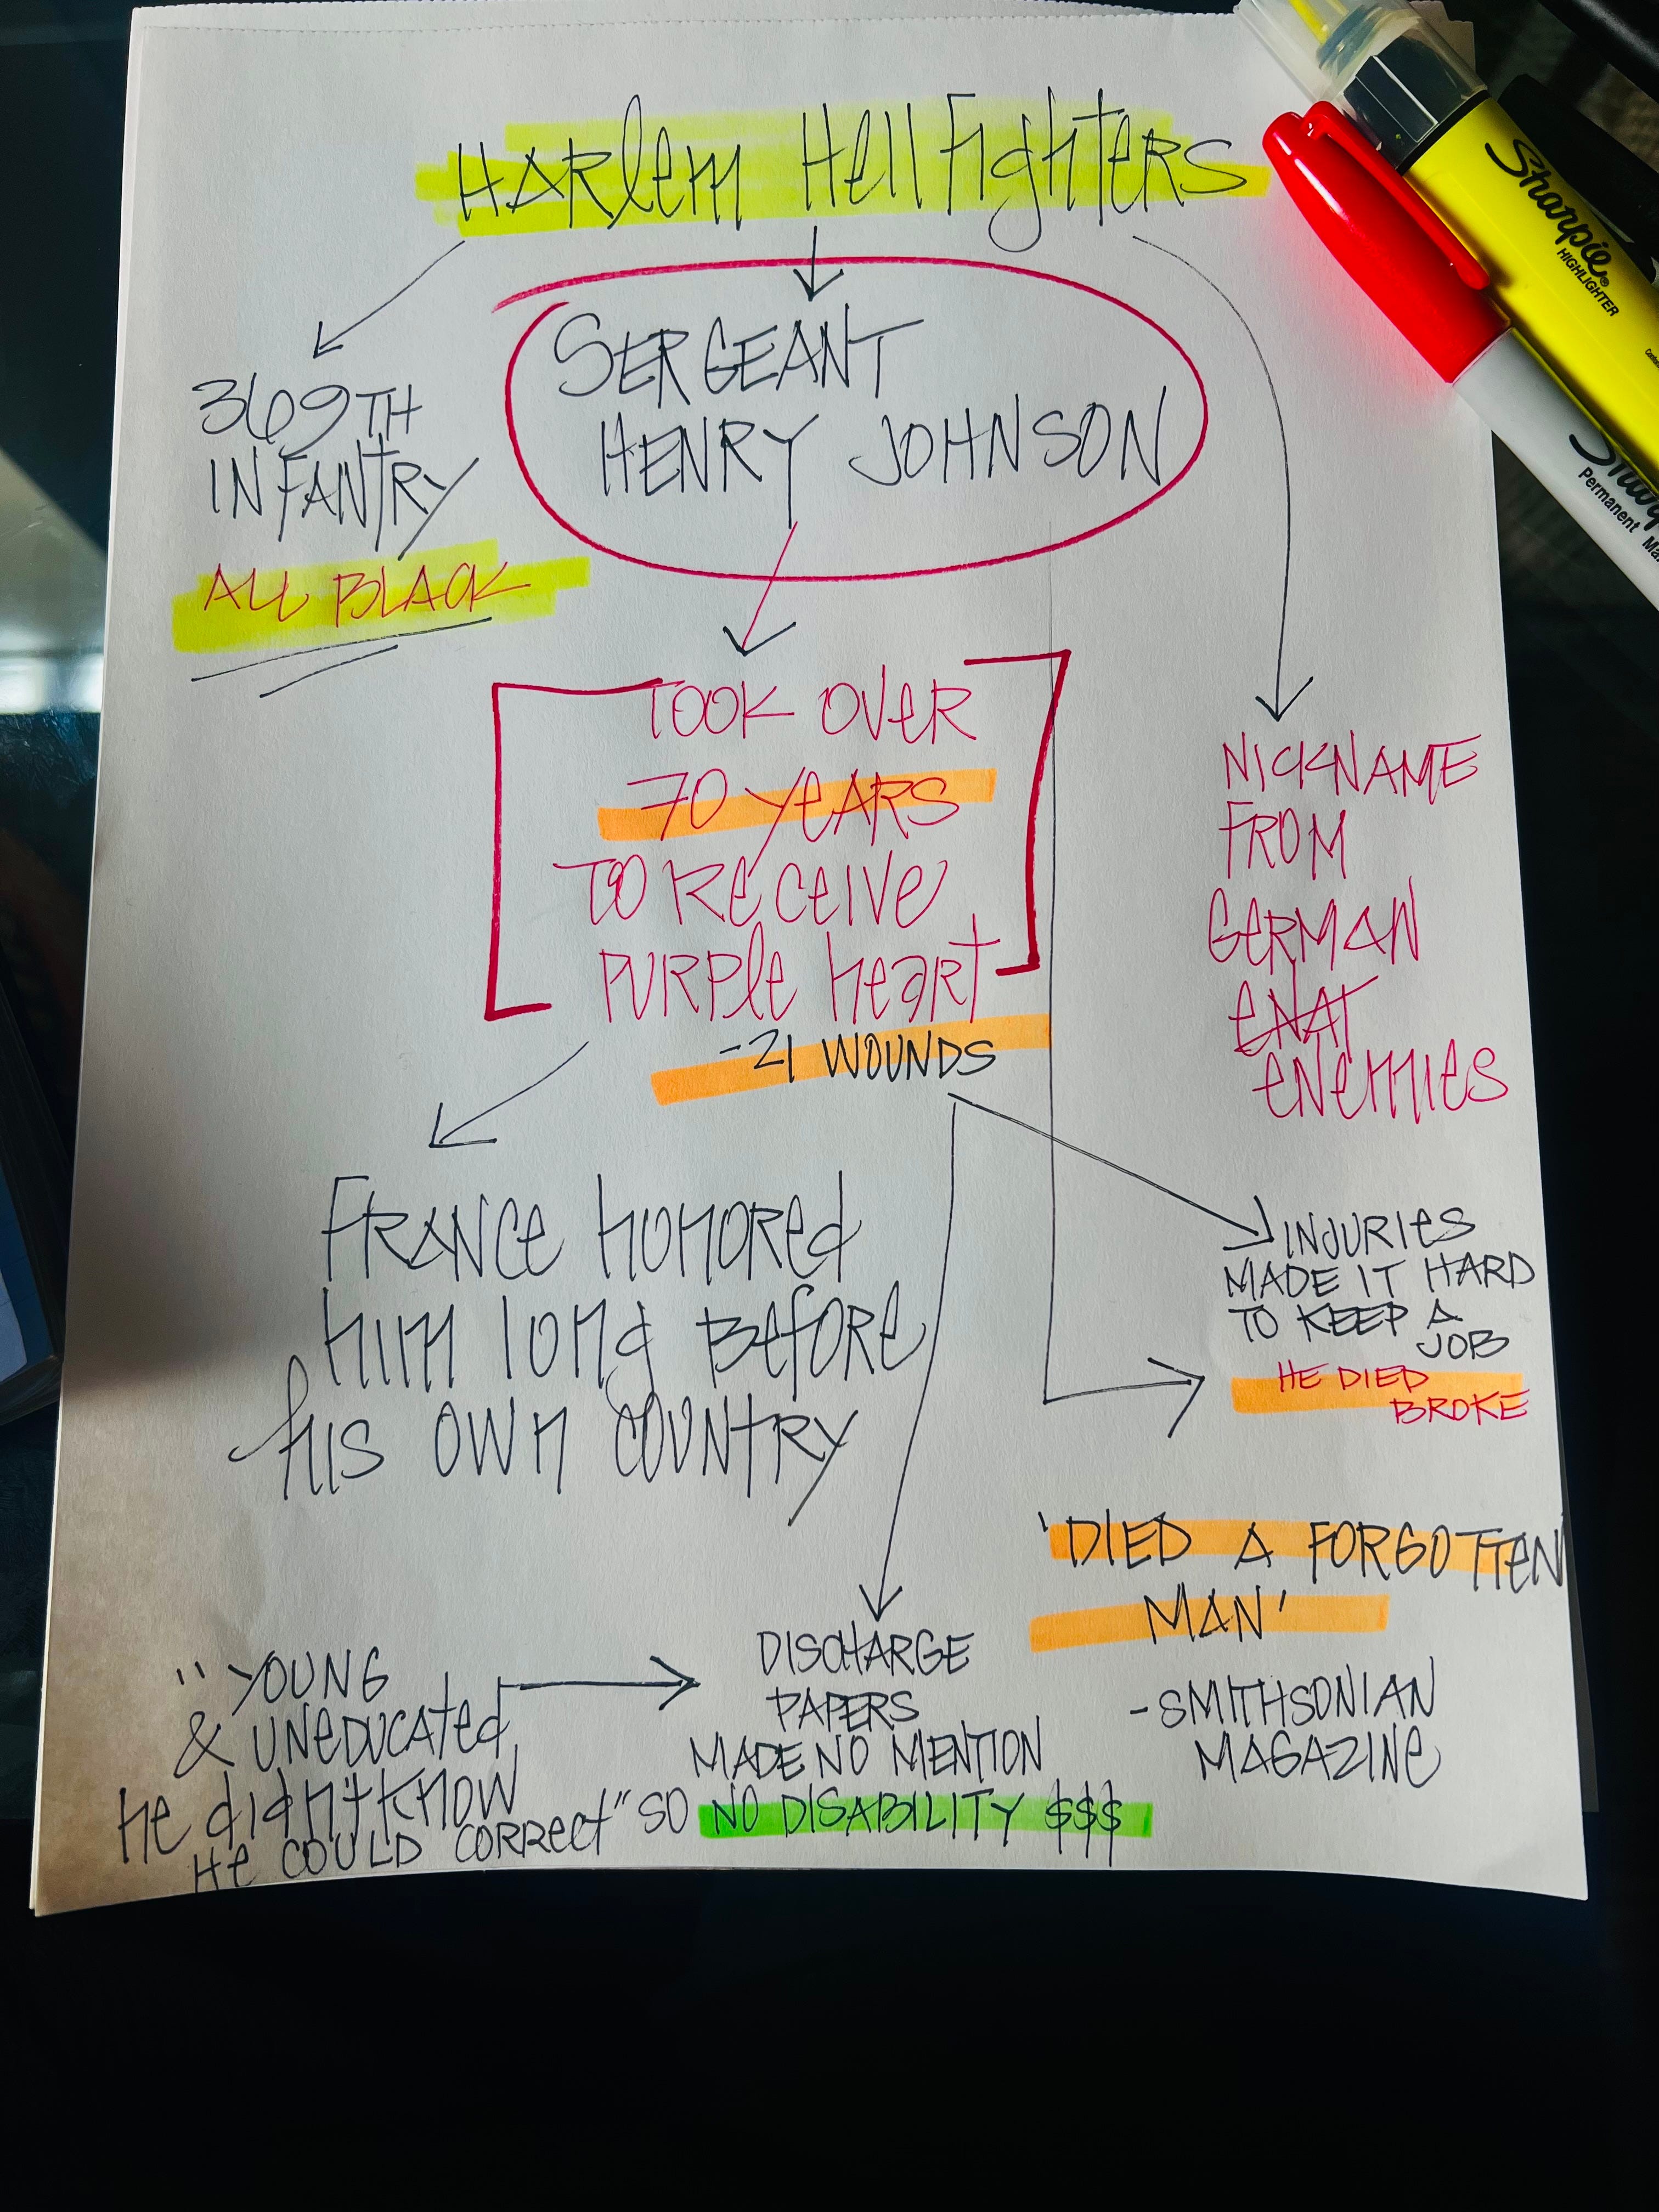 HARlem HellFighteRS
SERGEANT
HENRY JOHNSON
369TH
INFANTRY
ALL BLACK
TOOK OVeR
70 yeARS
TO ReCeIVe
PURPle heaRT
-21 WOUNDS
NICKNAME
FROM
GeRMAN
eNAT
eNemies
FRANCe honoRed
him long BefoRe
his own COUNTRY
INJURIeS
MADE IT HARD
TO KEEP A
JOB
HE DIED
BROKE
'DIED A FORGOTTeN
MAN'
-SMITHSONIAN
MAGAZINe
"YOUNG
& UNeDUCATed
He didn't know
He COULD CORRect"
DISCHARGE
PAPERS
MADE NO MENTION
SO NO DISABILITY $$$
Sharpie®
HIGHLIGHTER
Permanent